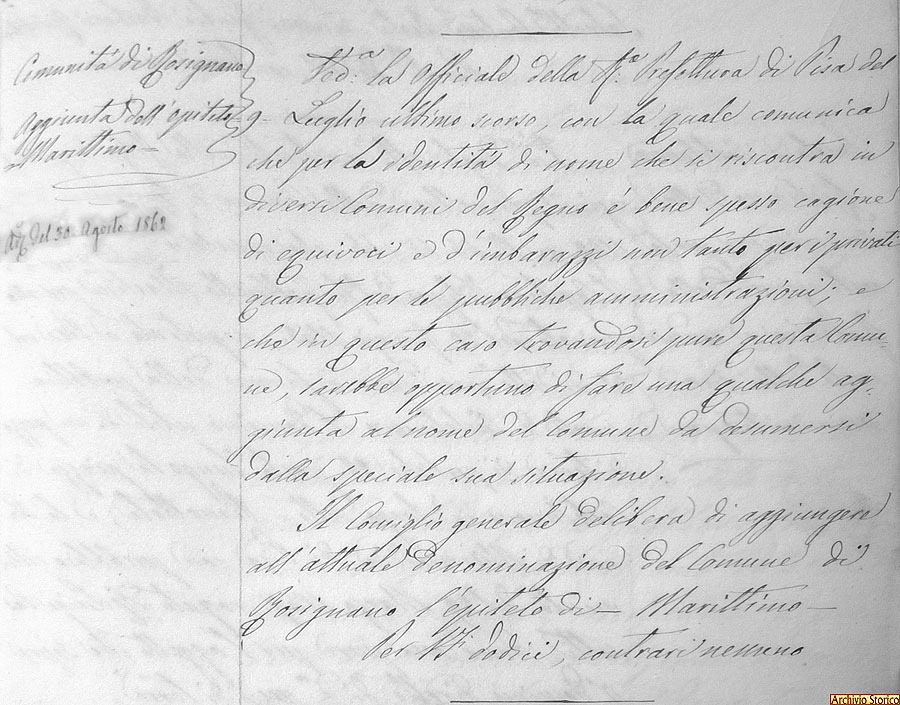 Comunità di Rosignano
Aggiunta dell'epiteto
Marittimo –
del 30 Agosto 1862
Ved.a la Officiale della R.a Prefettura di Pisa del
9 Luglio ultimo scorso, con la quale comunica
che per la identità di nome che si riscontra in
diversi Comuni del Regno é bene spesso cagione
di equivoci e d'imbarazzi non tanto per i privati
quanto per le pubbliche amministrazioni; e
che in questo caso trovandosi pure questa Comu-
ne, sarebbe opportuno di fare una qualche ag-
giunta al nome del Comune da desumersi
dalla speciale sua situazione.
Il Consiglio generale delibera di aggiungere
all'attuale denominazione del Comune di
Rosignano l'epiteto di – Marittimo –
Per dodici, contrari nessuno
Archivio Storico